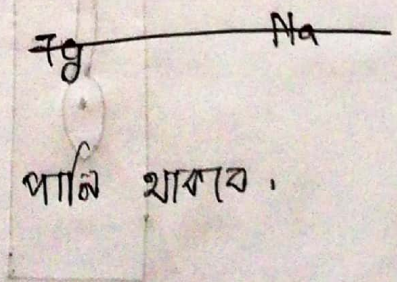 7g Na
পানি থাকবে।